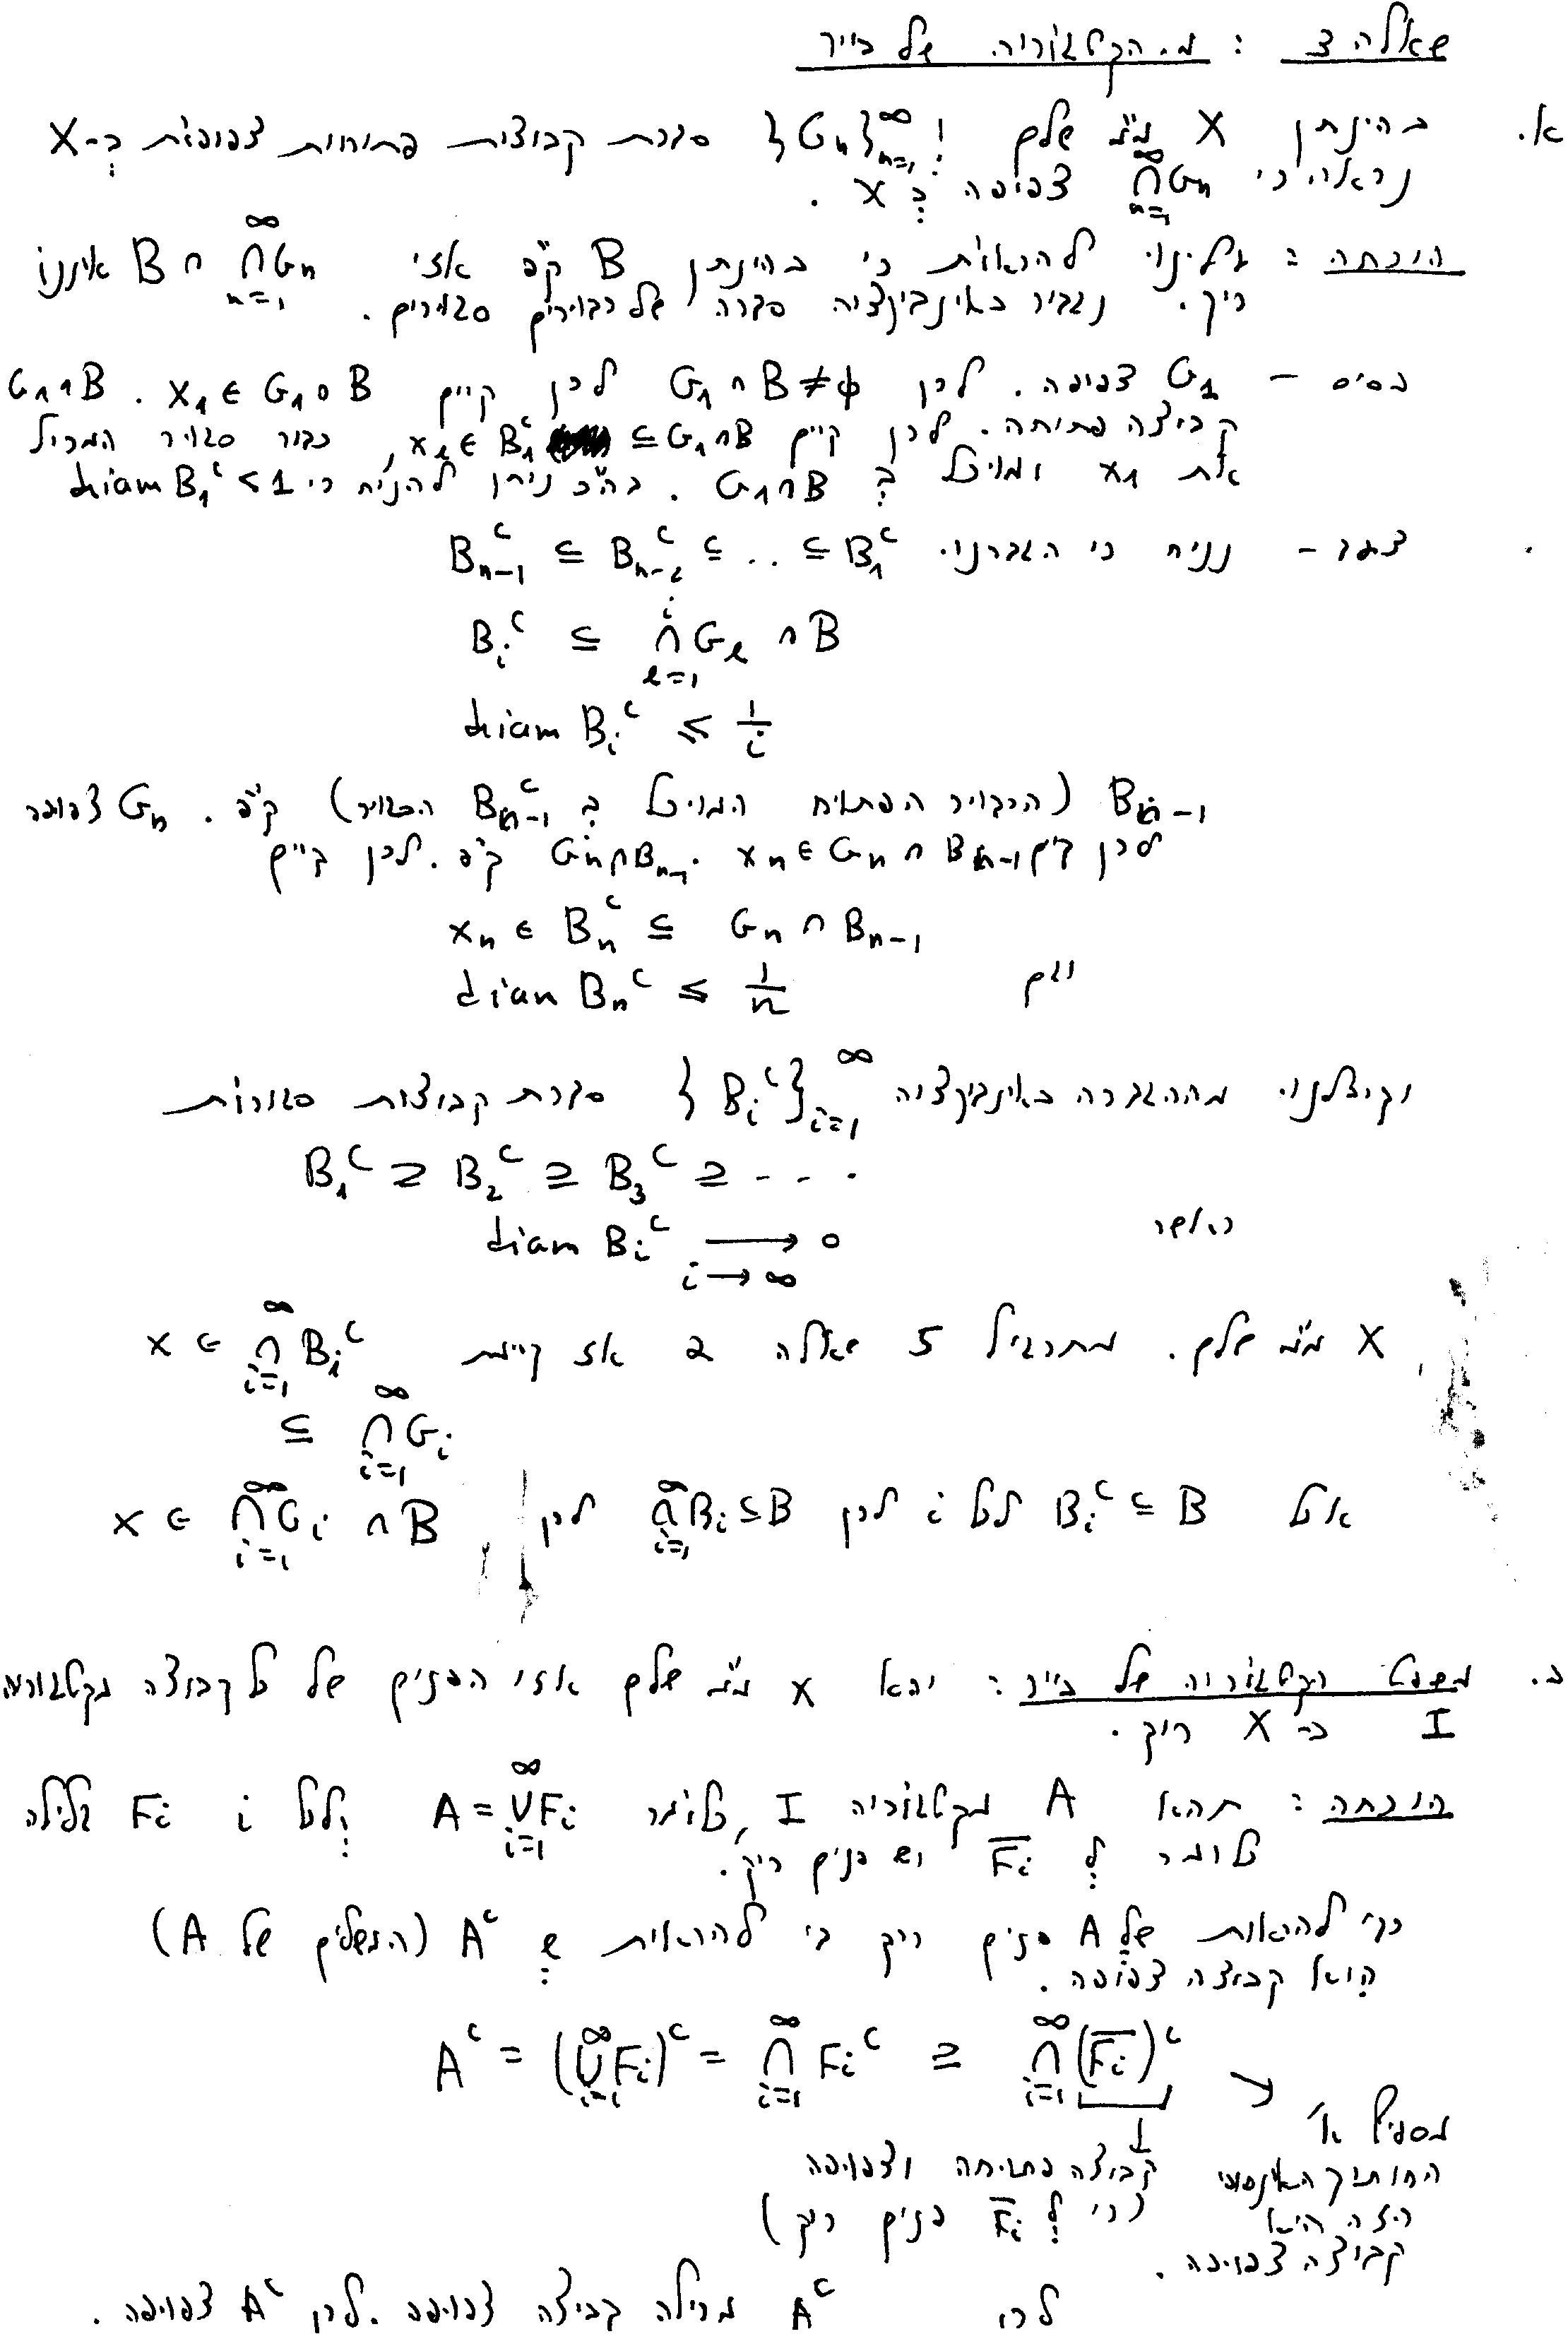 שאלה 3 : מ. הקטגוריה של בייר
א. בהינתן X מ"מ שלם ו {Gn}_{n=1}^∞ סדרת קבוצות פתוחות צפופות ב-X
נראה כי ∩_{n=1}^∞ Gn צפופה ב X .
הוכחה : עלינו להראות כי בהינתן B ק"פ אזי B ∩ ∩_{n=1}^∞ Gn איננו
ריק. נגדיר באינדוקציה סדרה של כדורים סגורים.
בסיס – G_1 צפופה. לכן G_1∩B≠ϕ לכן קיים x_1 ∈ G_1∩B . G_1∩B
קבוצה פתוחה. לכן קיים x_1 ∈ B_1^c ⊆ G_1∩B, כדור סגור המכיל
את x_1 ומוכל ב G_1∩B . בה"כ ניתן להניח כי diam B_1^c < 1
צעד – נניח כי הגדרנו B_{n-1}^c ⊆ B_{n-2}^c ⊆ .. ⊆ B_1^c
B_i^c ⊆ ∩_{l=1}^i G_l ∩ B
diam B_i^c ≤ 1/i
B_{n-1} (הכדור הפתוח המוכל ב B_{n-1}^c הסגור) ק"פ . Gn צפופה
לכן קיים x_n ∈ G_n ∩ B_{n-1} . G_n∩B_{n-1} ק"פ . לכן קיים
x_n ∈ B_n^c ⊆ G_n ∩ B_{n-1}
וגם diam B_n^c ≤ 1/n
וקיבלנו מההגדרה באינדוקציה {B_i^c}_{i=1}^∞ סדרת קבוצות סגורות
B_1^c ⊇ B_2^c ⊇ B_3^c ⊇ - - -
כאשר diam B_i^c →_{i→∞} 0
X מ"מ שלם. מתרגיל 5 שאלה 2 אז קיימת x ∈ ∩_{i=1}^∞ B_i^c
⊆ ∩_{i=1}^∞ G_i
אבל B_i^c ⊆ B לכל i לכן ∩_{i=1}^∞ B_i ⊆ B לכן x ∈ ∩_{i=1}^∞ G_i ∩ B
ב. משפט הקטגוריה של בייר : יהא X מ"מ שלם אזי הפנים של כל קבוצה מקטגוריה
I ב- X ריק .
הוכחה : תהא A מקטגוריה I, כלומר A = ∪_{i=1}^∞ F_i ולכל i F_i דלילה
כלומר ל F̅_i יש פנים ריק.
כדי להראות של A פנים ריק די להראות ש A^c (המשלים של A)
הוא קבוצה צפופה .
A^c = (∪_{i=1}^∞ F_i)^c = ∩_{i=1}^∞ F_i^c ⊇ ∩_{i=1}^∞ (F̅_i)^c
מסעיף א'
קבוצה פתוחה וצפופה
החיתוך האינסופי
(כי ל F̅_i פנים ריק)
הזה היא
קבוצה צפופה .
לכן A^c מכילה קבוצה צפופה . לכן A^c צפופה .